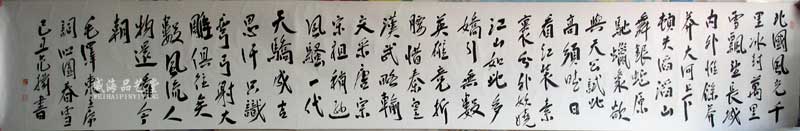 北國風光千
里冰封萬里
雪飄望長城
内外惟餘莽
莽大河上下
頓失滔滔山
舞銀蛇原
馳蠟象欲
與天公試比
高須晴日
看紅裝素
裹分外妖嬈
江山如此多
嬌引無數
英雄競折
腰惜秦皇
漢武略輸
文采唐宗
宋祖稍遜
風騷一代
天驕成吉
思汗只識
彎弓射大
雕俱往矣
數風流人
物還看今
朝
毛澤東
詞沁園春雪
己丑 書
威海品艺堂
WEIHAIPINYITANG